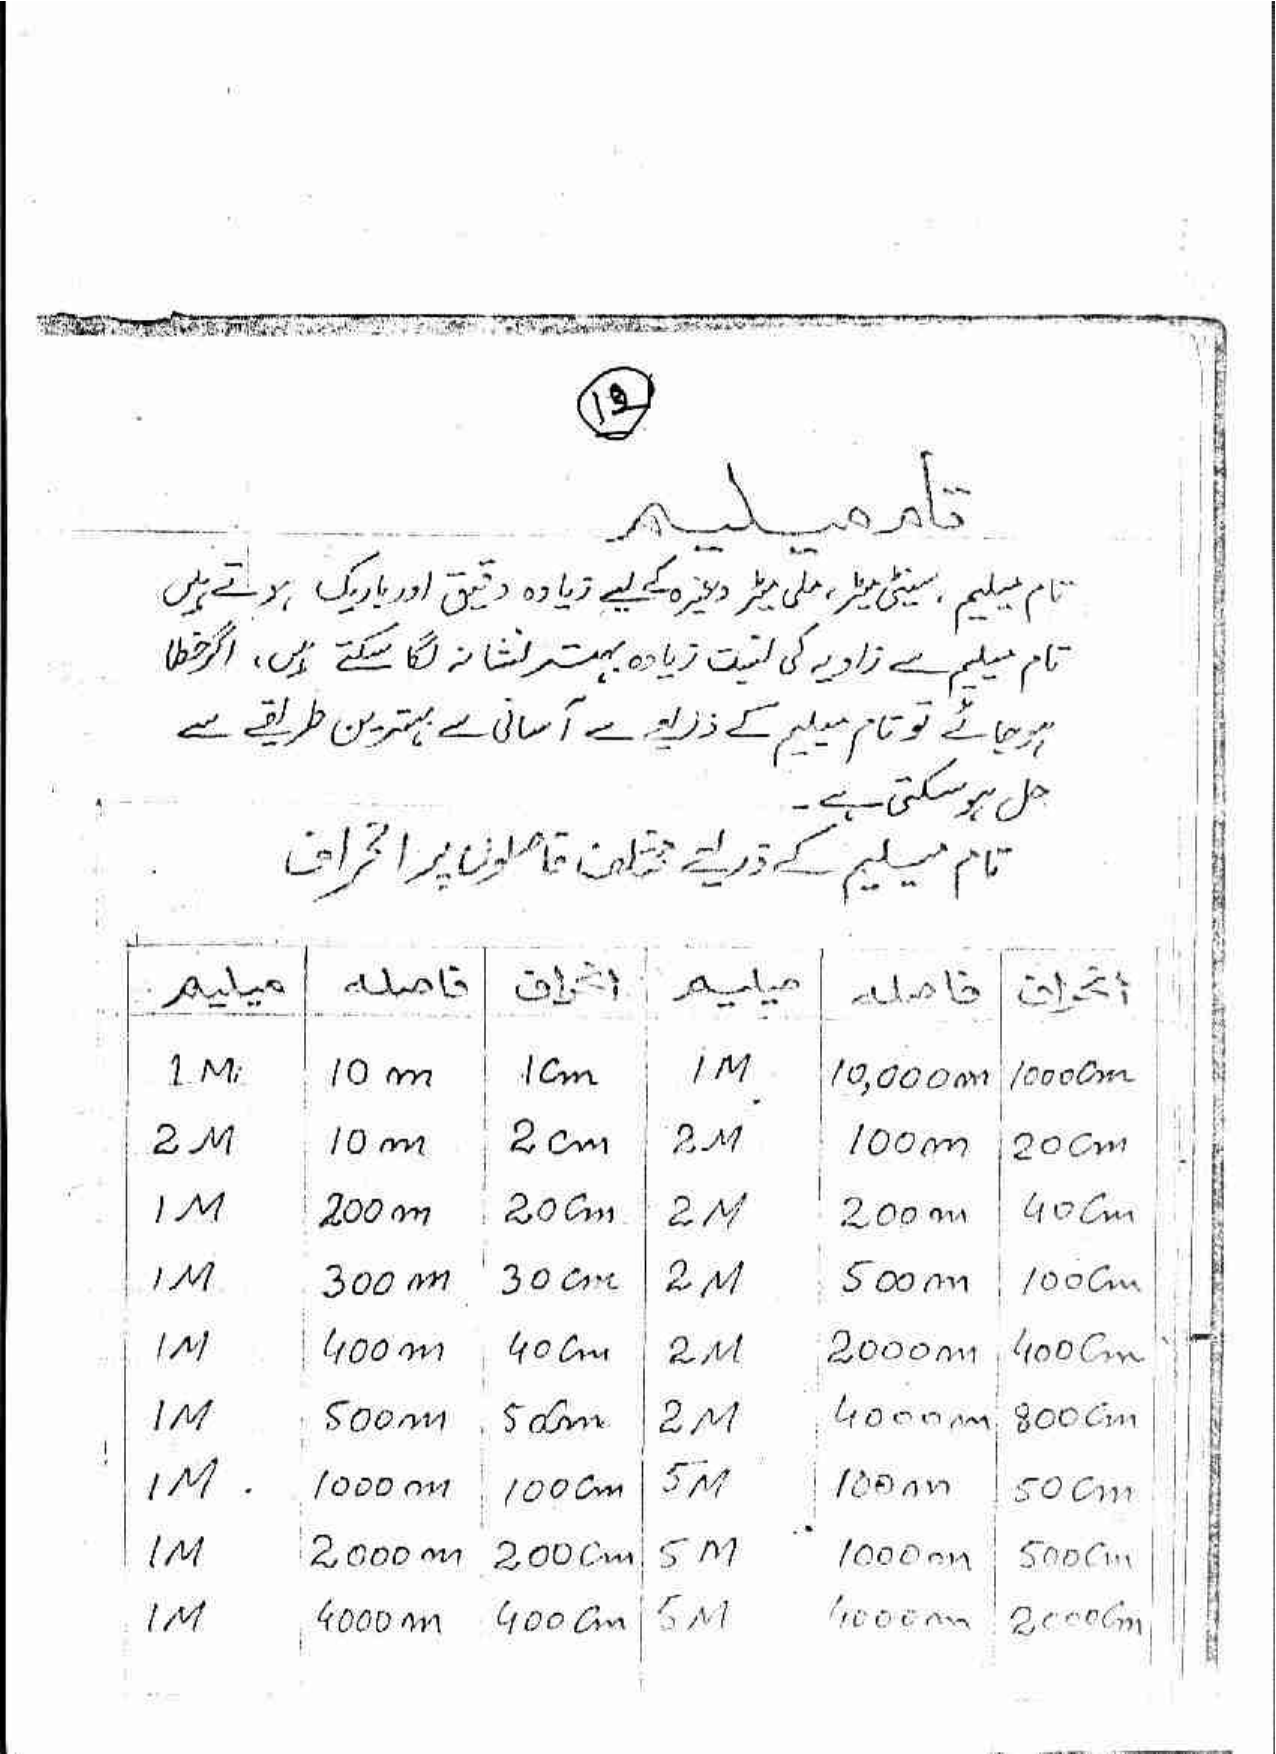 19
تام میلیم
تام میلیم، سینٹی میٹر، ملی میٹر وغیرہ کے لیے زیادہ دقیق اور باریک ہوتے ہیں
تام میلیم سے زاویہ کی نسبت زیادہ بہتر نشانہ لگا سکتے ہیں، اگر خطا
ہو جائے تو تام میلیم کے ذریعے سے آسانی سے بہترین طریقے سے
حل ہو سکتی ہے۔
تام میلیم کے ذریعے مختلف فاصلوں پر انحراف
میلیم فاصلہ انحراف میلیم فاصلہ انحراف
1 M 10 m 1 Cm 1 M 10,000m 1000Cm
2 M 10 m 2 Cm 2 M 100m 20 Cm
1 M 200m 20Cm 2 M 200m 40Cm
1 M 300m 30 Cm 2 M 500m 100Cm
1 M 400m 40Cm 2 M 2000m 400Cm
1 M 500m 50Cm 2 M 4000m 800Cm
1 M 1000m 100Cm 5 M 100m 50Cm
1 M 2000m 200Cm 5 M 1000m 500Cm
1 M 4000m 400Cm 5 M 4000m 2000Cm